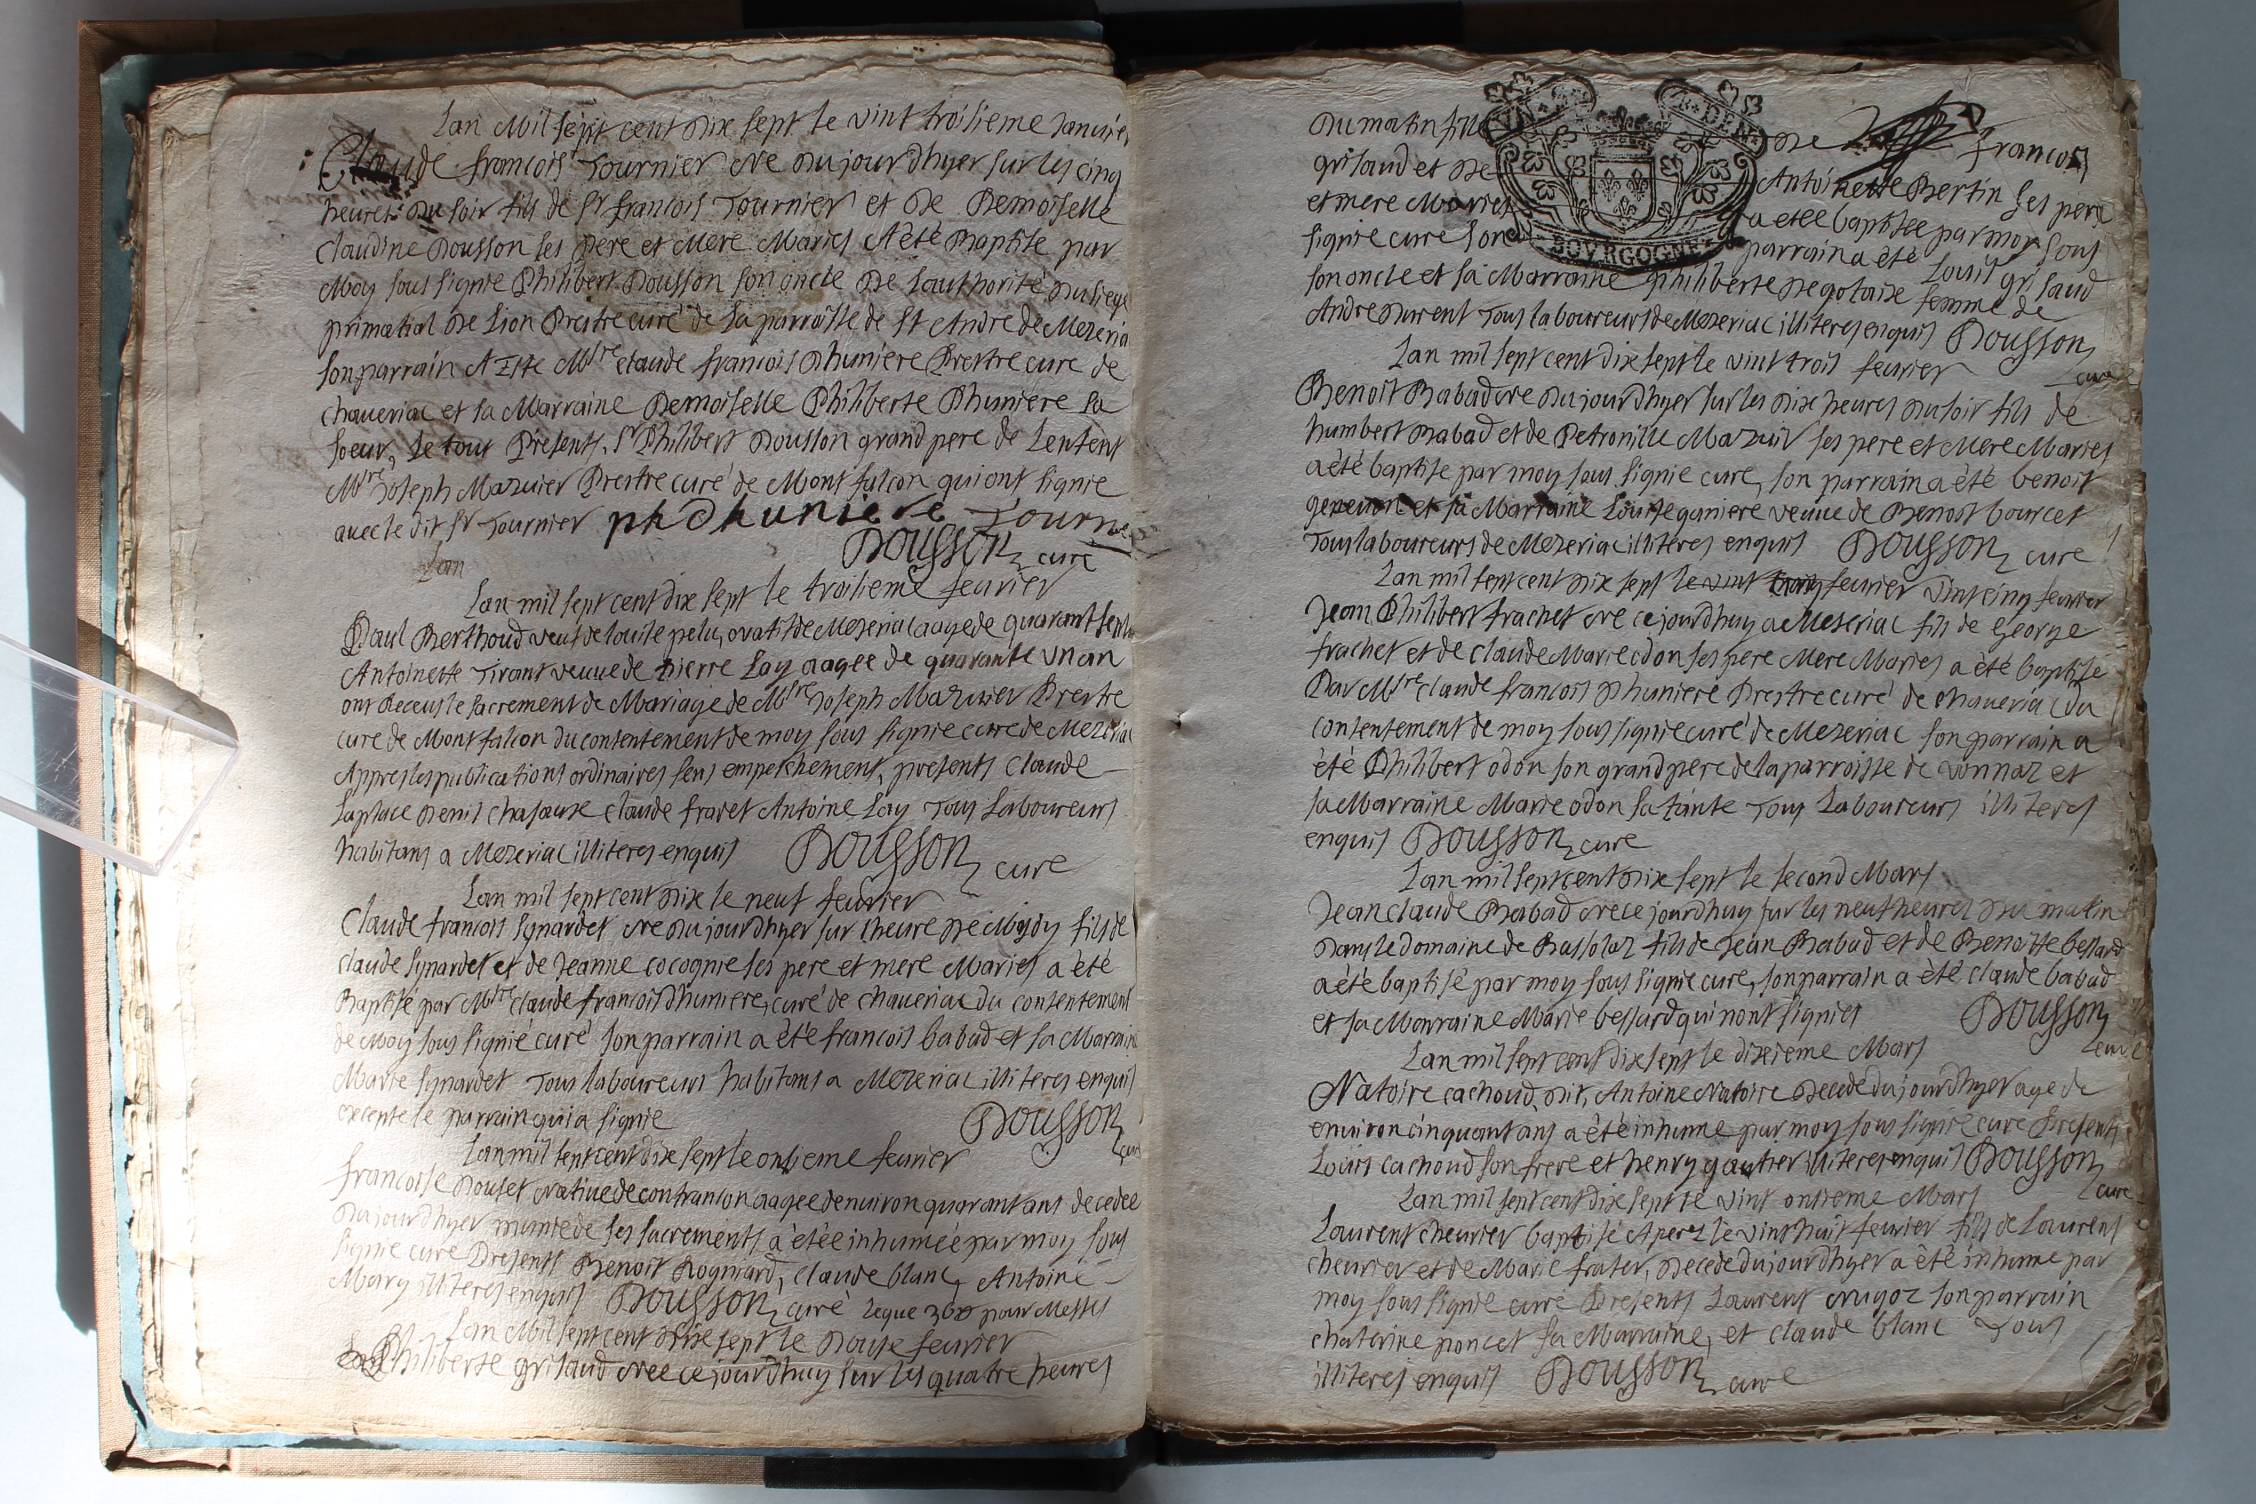 Lan Mil sept cent Dix sept le vint troisieme Janvier
Claude francois Tournier Né Dujourdhyer sur les cinq
heures Du soir fils de Sr francois Tournier et De Demoiselle
Claudine Dousson ses Pere et Mere Maries A été Baptise par
Moy sous signié Philibert Dousson son oncle De Lauthorité Du siege
primatial De Lion Prestre curé de la parroisse de St André de Mezeria
son parrain A Este Mtre claude francois Dhuniere Prestre curé de
chaveriac et sa Marraine Demoiselle Philiberte Dhuniere sa
soeur, Le tout Presents, Sr Philibert Dousson grand pere de Lentent
Mtre Joseph Mazuier Prestre curé de Mont falcon qui ont signie
avec le dit Sr Tournier ph Dhuniere Tournier
Dousson curé
Lan
Lan mil sept cent dix sept le troisieme fevrier
Paul Berthoud veuf de louise pelu, natif de Mezeriac aagé de quarant sept
Antoinette Tirant veuve de Pierre Lay aagee de quarante un an
ont Receus le sacrement de Mariage de Mtre Joseph Mazuier Prestre
cure de Mont falcon du consentement de moy sous signie cure de Mezeriac
Appres les publications ordinaires sens empeschement, presents Claude
Laplace Denis claude fravet Antoine Lay Tous Laboureurs
habitans a Mezeriac illiteres enquis Dousson curé
Lan mil sept cent Dix le neuf fevrier
Claude francois Synardet Né Dujourdhyer sur lheure De Midy fils de
claude Synardet et de Jeanne cocognie ses pere et mere Maries a été
Baptisé par Mtre claude francois Dhuniere, curé de chaveriac du consentement
de Moy sous signié curé son parrain a été francois babad et sa Marraine
Marie Synardet Tous laboureurs habitans a Mezeriac illiteres enquis
excepte le parrain qui a signie Dousson cure
Lan mil sept cent Dix sept le onzieme fevrier
francoise Douset Native de confrancon aagee denviron quarant ans decedee
Dujourdhyer munie de ses sacrements a étée inhumée par moy sous
signie cure Presents Benoit Rogniard, Claude blanc, Antoine
Mary illiteres enquis Dousson curé Legue pour Messes
Lan Mil sept cent Dix sept le Douse fevrier
Philiberte grisaud Nee cejourdhuy sur les quatre heures
Du matin fille De francois
grisaud et De Antoinette Bertin ses pere
et mere Maries a étée baptisee par moy sous
signie curé son parrain a été Louis grisaud
son oncle et sa Marraine Philiberte femme de
André Durent Tous laboureurs de Mezeriac illiteres enquis Dousson
cure
BOVRGOGNE
Lan mil sept cent dix sept le vint trois fevrier
Benoit Babad Né Dujourdhyer sur les Dix heures Du soir fils de
humbert Babad et de Petronille Mazuir ses pere et Mere Maries
a été baptise par moy sous signie curé, son parrain a été benoit
et sa Marraine Louise ganiere veuve de Benoit bourcet
Tous laboureurs de Mezeriac illiteres enquis Dousson cure
Lan mil sept cent Dix sept le vint fevrier vint cinq fevrier
Jean Philibert frachet Né cejourdhuy a Mezeriac fils de George
frachet et de claude Marie odon ses pere Mere Maries a été baptisé
Par Mtre claude francois Dhuniere Prestre curé de chaveriac du
consentement de moy sous signie curé de Mezeriac son parrain a
été Philibert odon son grand pere de la parroisse de vonnaz et
sa Marraine Marie odon sa tante Tous Laboureurs illiteres
enquis Dousson cure
Lan mil sept cent Dix sept le second Mars
Jean claude Babad Né cejourdhuy sur les neuf heures Du matin
Dans le domaine de Bassolaz fils de Jean Babad et de Benoitte bessard
a été baptisé par moy sous signie curé, son parrain a été claude babad
et sa Marraine Marie bessard qui nont signies Dousson
cure
Lan mil sept cent Dix sept le dixieme Mars
Natoire cachoud, dit, Antoine Natoire Decede dujourdhyer age de
environ cinquant ans a été inhume par moy sous signie cure Presents
Louis cachoud son frere et henry gautier illiteres enquis Dousson
cure
Lan mil sept cent dix sept le vint onsieme Mars
Laurent chevrier baptisé le vint huit fevrier fils de Laurent
chevrier et de Marie frater, Decede dujourdhyer a été inhume par
moy sous signie curé Presents Laurent son parrain
chaterine poncet sa Marraine, et claude blanc Tous
illiteres enquis Dousson cure